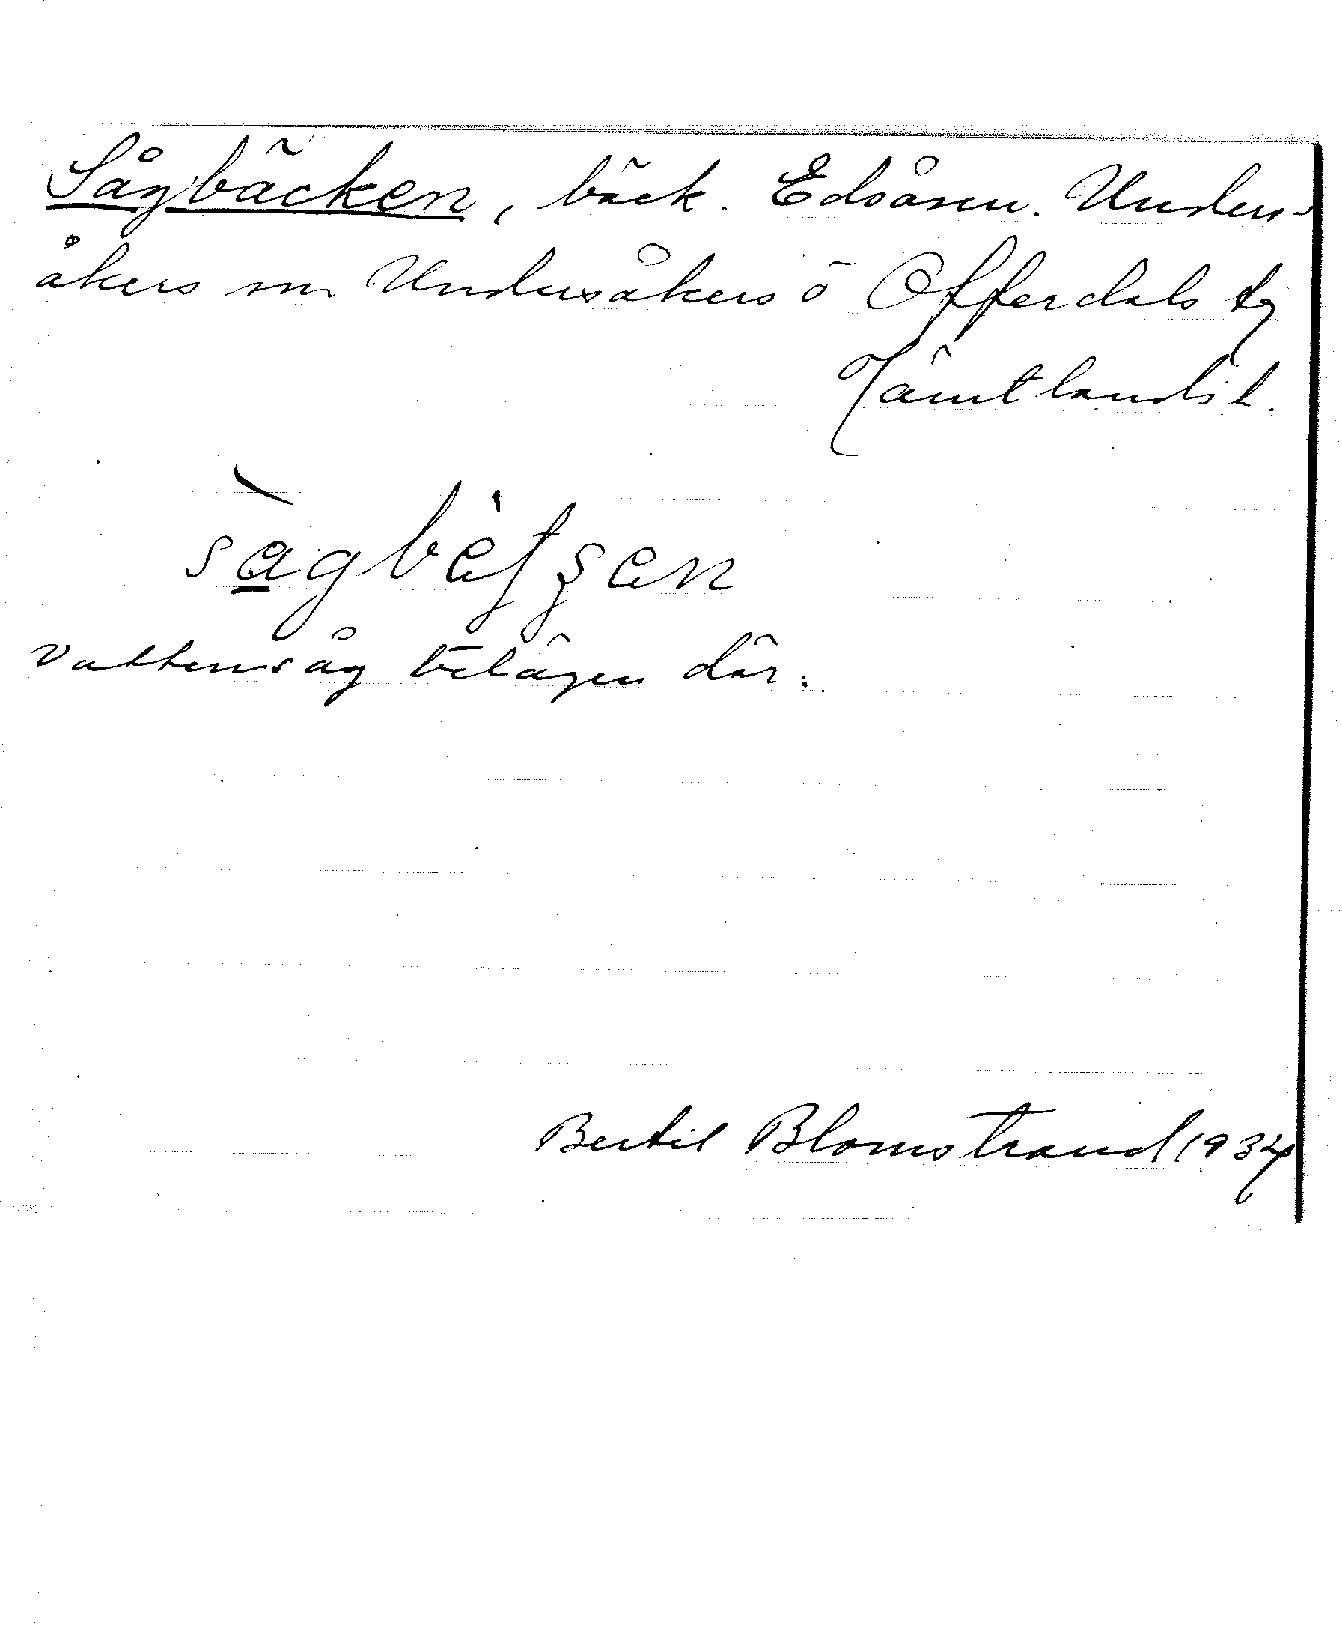 Sågbäcken, bäck. Edsåsen. Unders-
åkers sn Undersåkers o Offerdals tg
Jämtlands l.
sàgbètʃen
Vattensåg belägen där.
Bertil Blomstrand 1934